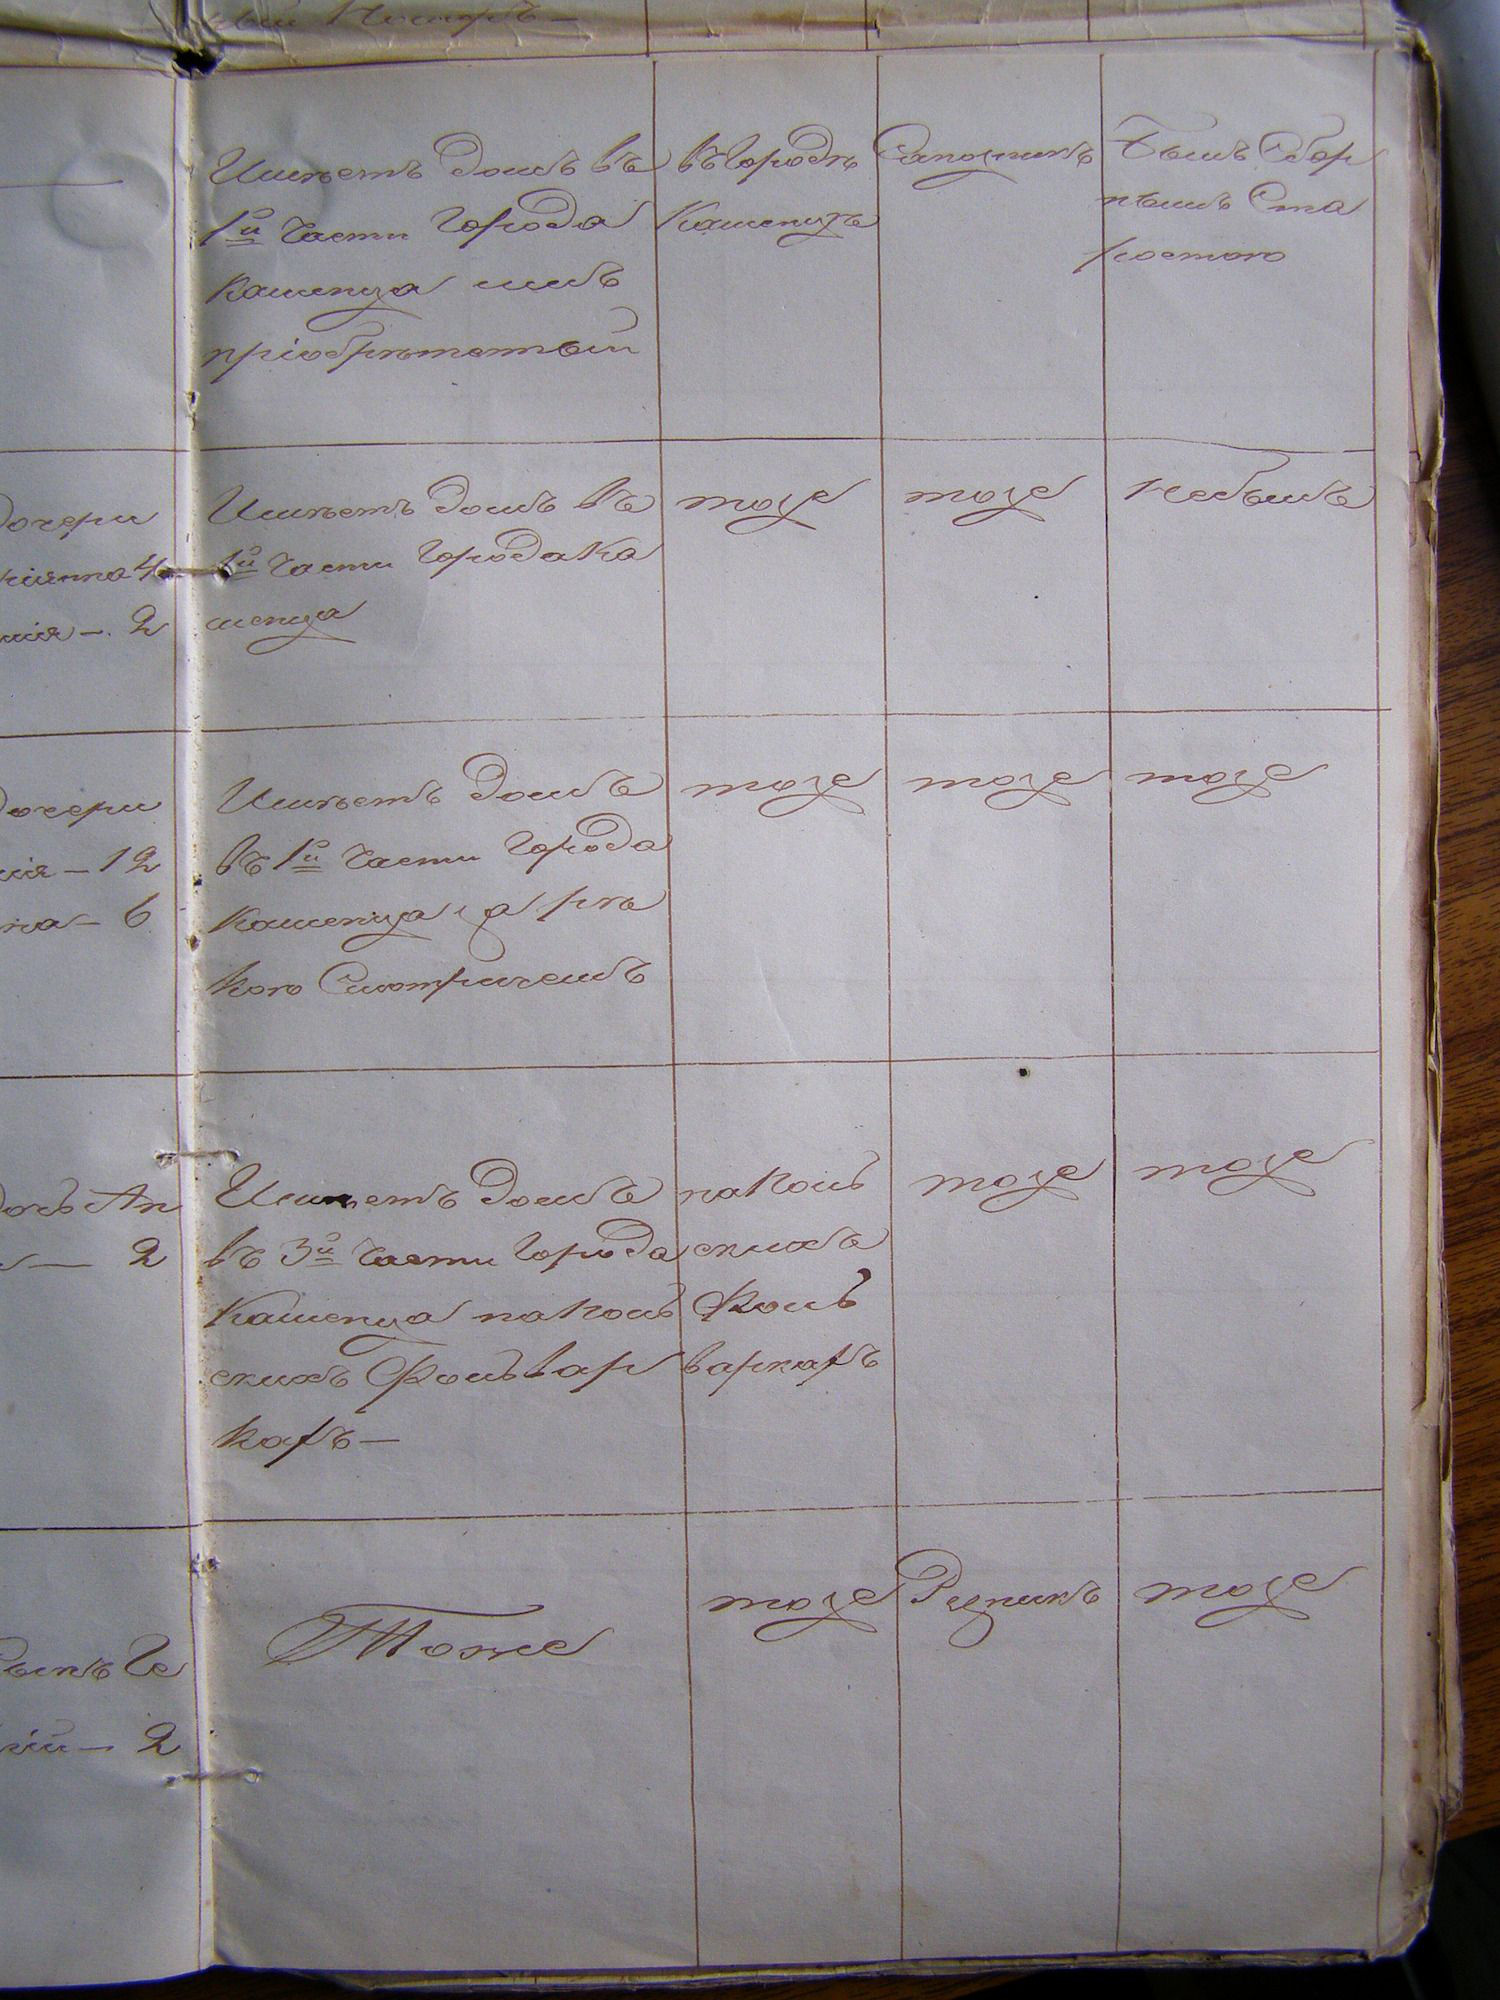 Имѣетъ домъ въ
1й части города
Каменца имъ
пріобрѣтенный
въ городѣ
Каменцѣ
Сапожникъ
Былъ Сбор
нымъ Ста
ростою
дочери
4
2
Имѣетъ домъ въ
1й части города Ка
менца
тоже
тоже
Небылъ
дочери
12
6
Имѣетъ домъ
въ 1й части города
Каменца за рѣ
кою Смотричемъ
тоже
тоже
тоже
дочь Ан
2
Имѣетъ домъ
въ 3й части города
Каменца на Поль
скихъ Фольвар
кахъ —
на Поль
скихъ
Фоль
варкахъ
тоже
тоже
2
Тоже
тоже
Рѣзникъ
тоже